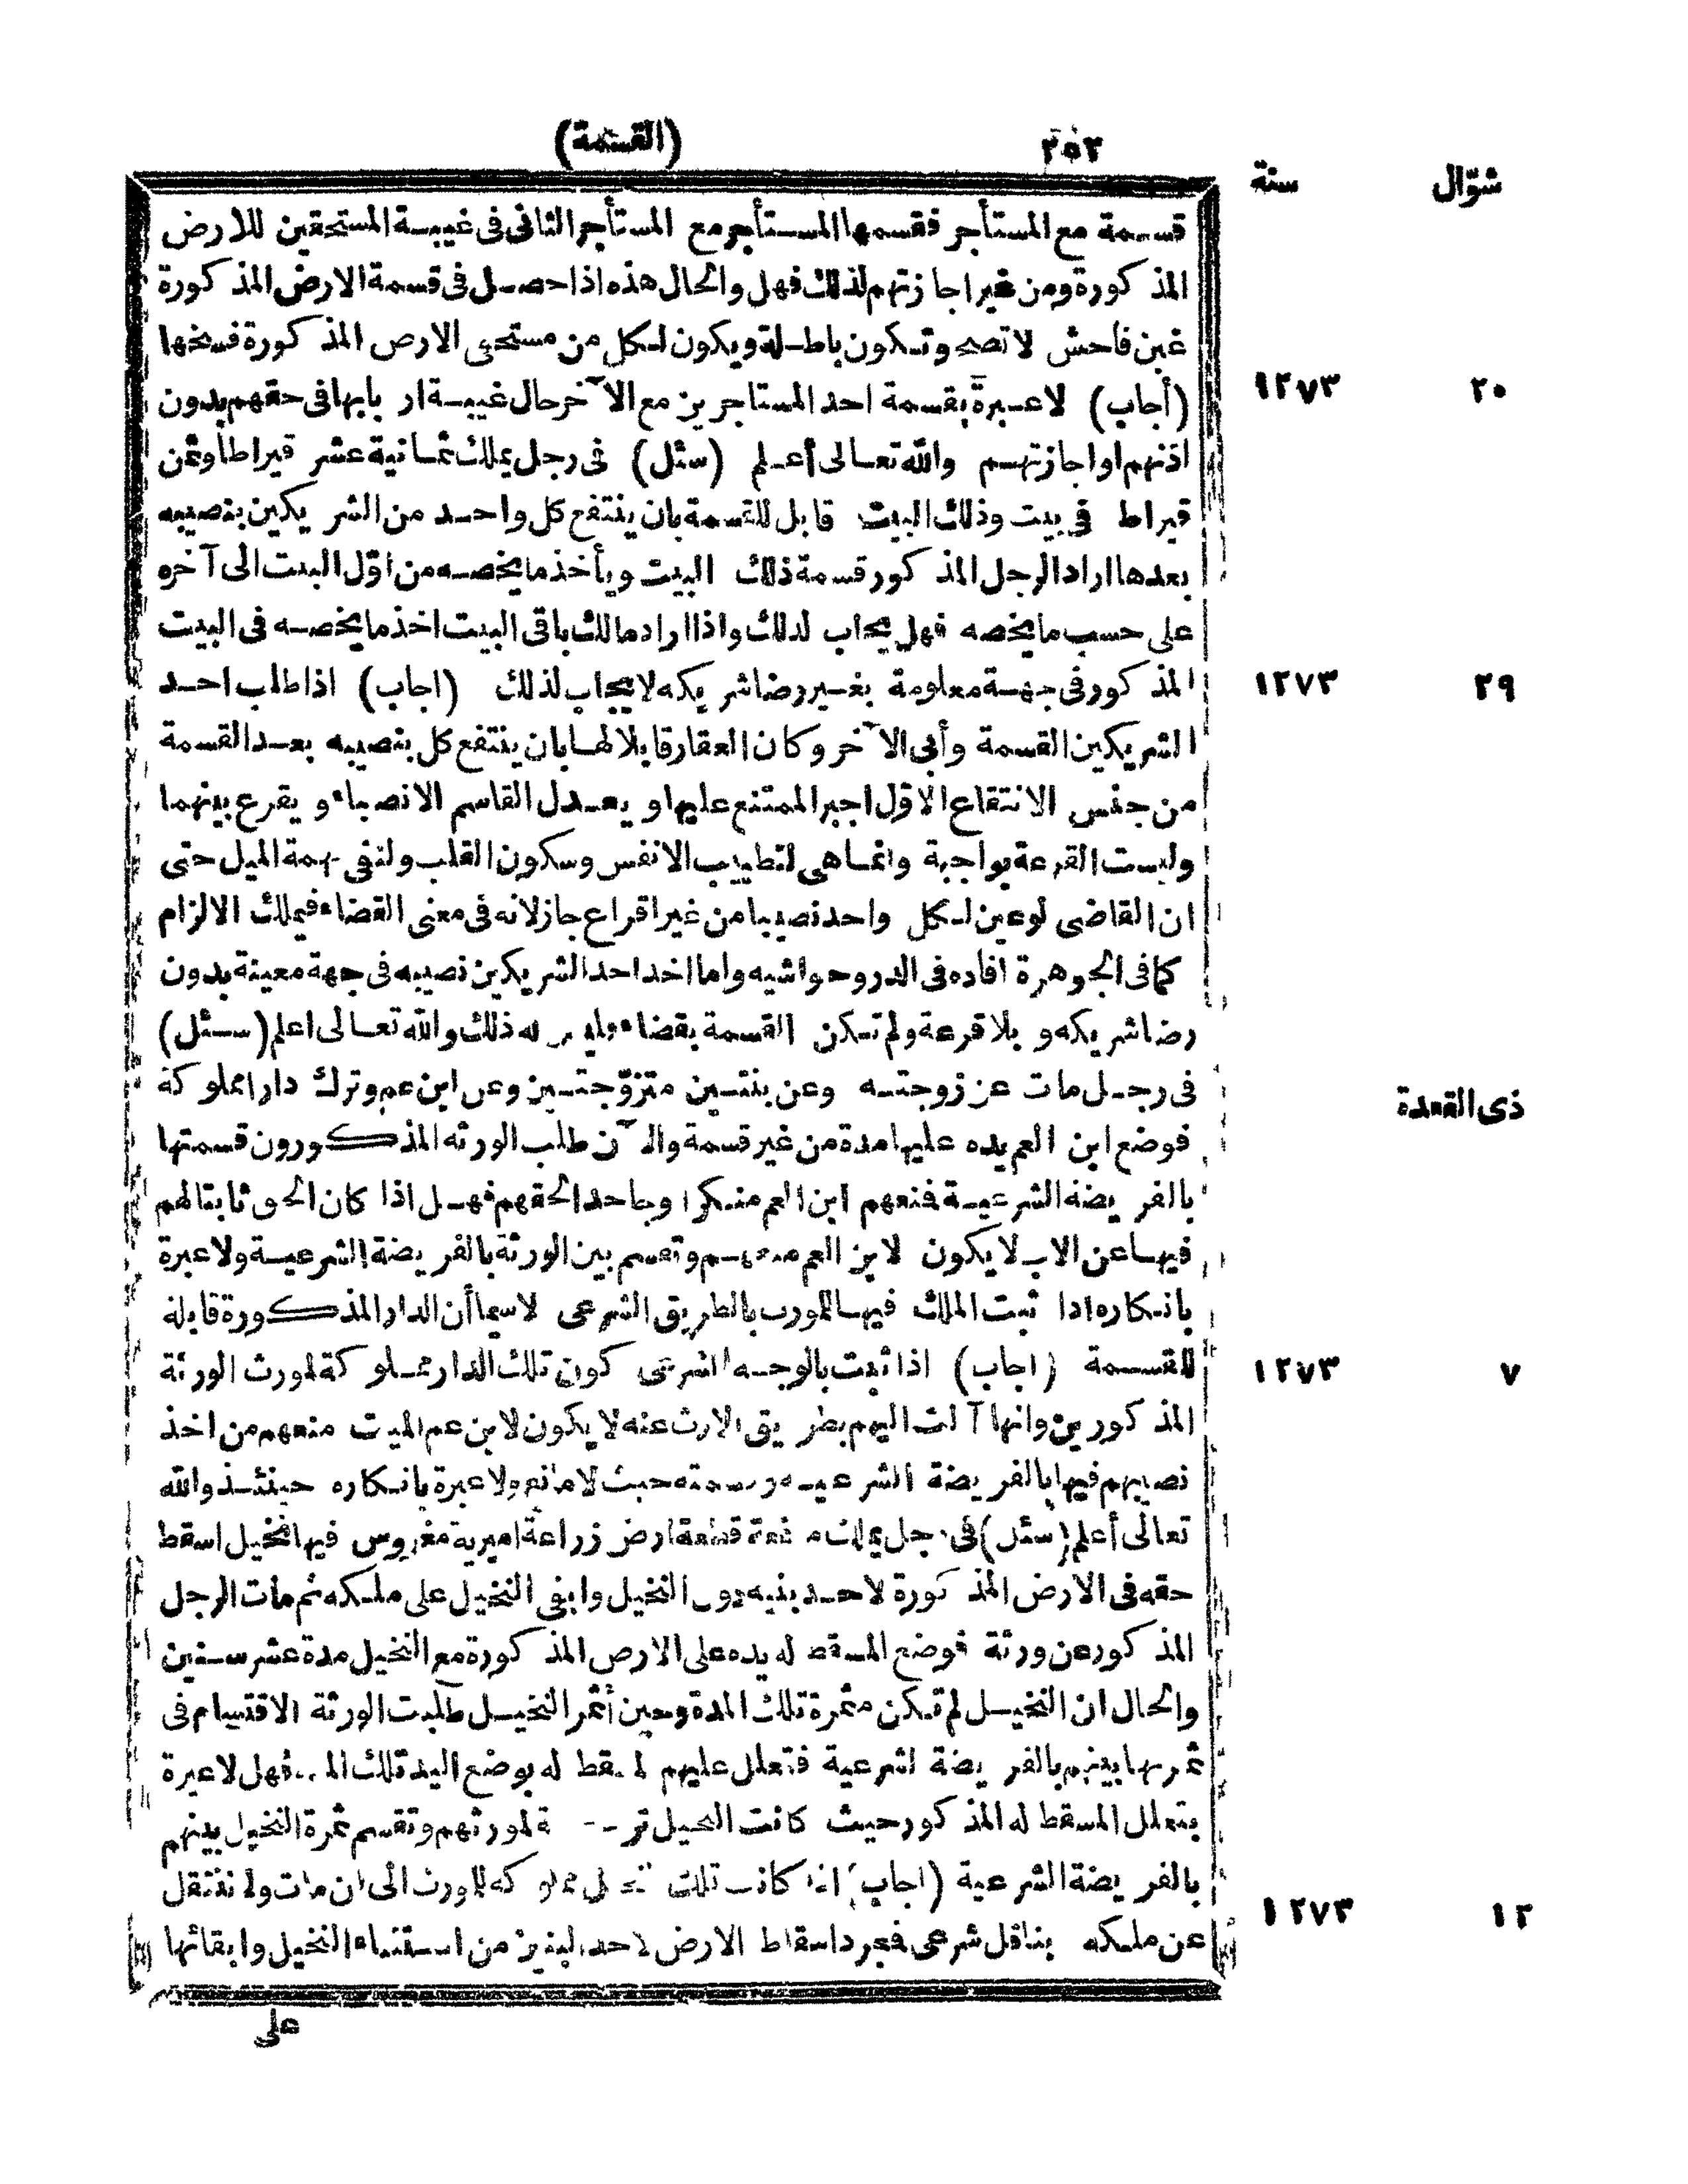 (القسمة)
٢٥٣
شوّال
سنة
قسمة مع المستأجر فقسمها المستأجر مع المستأجر الثانى فى غيبة المستحقين للارض
المذكورة ومن غير اجازتهم لذلك فهل والحال هذه اذا حصل فى قسمة الارض المذكورة
غبن فاحش لا تصح وتكون باطلة ويكون لكل من مستحقى الارض المذكورة فسخها
(أجاب) لا عبرة بقسمة احد المستاجرين مع الآخر حال غيبة اربابها فى حقهم بدون
٢٠
١٢٧٣
اذنهم او اجازتهم والله تعالى أعلم (سئل) فى رجل يملك ثمانية عشر قيراطا وثمن
قيراط فى بيت وذلك البيت قابل للقسمة بان ينتفع كل واحد من الشريكين بنصيبه
بعدها اراد الرجل المذكور قسمة ذلك البيت ويأخذ ما يخصه من اوّل البيت الى آخره
على حسب ما يخصه فهل يجاب لذلك واذا اراد مالك باقى البيت اخذ ما يخصه فى البيت
المذكور فى جهة معلومة بغير رضا شريكه لا يجاب لذلك (اجاب) اذا طلب احد
٢٩
١٢٧٣
الشريكين القسمة وأبى الآخر وكان العقار قابلا لها بان ينتفع كل بنصيبه بعد القسمة
من جنس الانتفاع الاوّل اجبر الممتنع عليها ويعدل القاسم الانصباء ويقرع بينهما
وليست القرعة بواجبة وانما هى لتطييب الانفس وسكون القلب ولنفى تهمة الميل حتى
ان القاضى لو عين لكل واحد نصيبا من غير اقراع جاز لانه فى معنى القضاء فيملك الالزام
كما فى الجوهرة افاده فى الدر وحواشيه واما اخذ احد الشريكين نصيبه فى جهة معينة بدون
رضا شريكه وبلا قرعة ولم تكن القسمة بقضاء فليس له ذلك والله تعالى اعلم (سئل)
فى رجل مات عن زوجته وعن بنتين متزوّجتين وعن ابن عم وترك دارا مملوكة
ذى القعدة
فوضع ابن العم يده عليها مدة من غير قسمة والآن طلب الورثه المذكورون قسمتها
بالفريضة الشرعية فمنعهم ابن العم منكرا وجاحدا لحقهم فهل اذا كان الحق ثابتا لهم
فيها عن الاب لا يكون لابن العم منعهم وتقسم بين الورثة بالفريضة الشرعية ولا عبرة
بانكاره اذا ثبت الملك فيها للمورث بالطريق الشرعى لا سيما أن الدار المذكورة قابلة
للقسمة (اجاب) اذا ثبت بالوجه الشرعى كون تلك الدار مملوكة لمورث الورثة
٧
١٢٧٣
المذكورين وانها آلت اليهم بطريق الارث عنه لا يكون لابن عم الميت منعهم من اخذ
نصيبهم فيها بالفريضة الشرعيه وقسمته حيث لا مانع ولا عبرة بانكاره حينئذ والله
تعالى أعلم (سئل) فى رجل يملك منفعة قطعة ارض زراعة اميرية مغروس فيها نخيل اسقط
حقه فى الارض المذكورة لاحد بنيه دون النخيل وابقى النخيل على ملكه ثم مات الرجل
المذكور عن ورثة فوضع المسقط له يده على الارض المذكورة مع النخيل مدة عشر سنين
والحال ان النخيل لم تكن مثمرة تلك المدة وحين أثمر النخيل طلبت الورثة الاقتسام فى
ثمرتها بينهم بالفريضة الشرعية فتعلل عليهم المسقط له بوضع اليد تلك المدة فهل لا عبرة
بتعلل المسقط له المذكور حيث كانت النخيل لمورثهم وتقسم ثمرة النخيل بينهم
بالفريضة الشرعية (اجاب) اذا كانت تلك النخيل مملوكه للمورث الى ان مات ولم تنتقل
عن ملكه بناقل شرعى فمجرد اسقاط الارض لاحد البنين من استثناء النخيل وابقائها
١٢
١٢٧٣
على